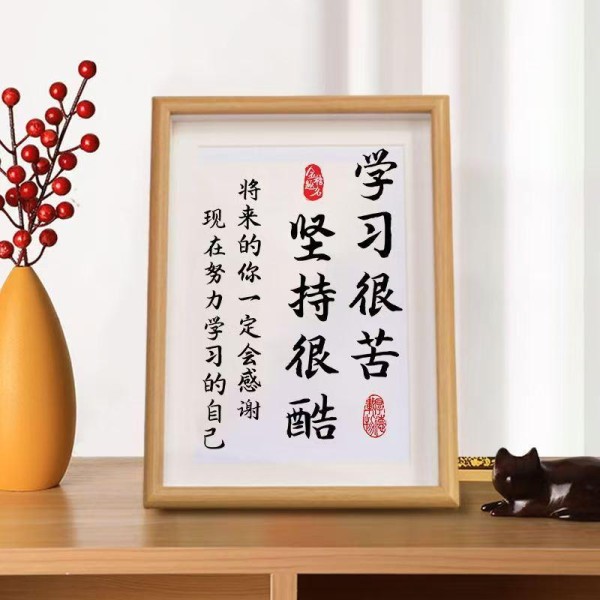 学习很苦
坚持很酷
将来的你一定会感谢
现在努力学习的自己
金榜题名